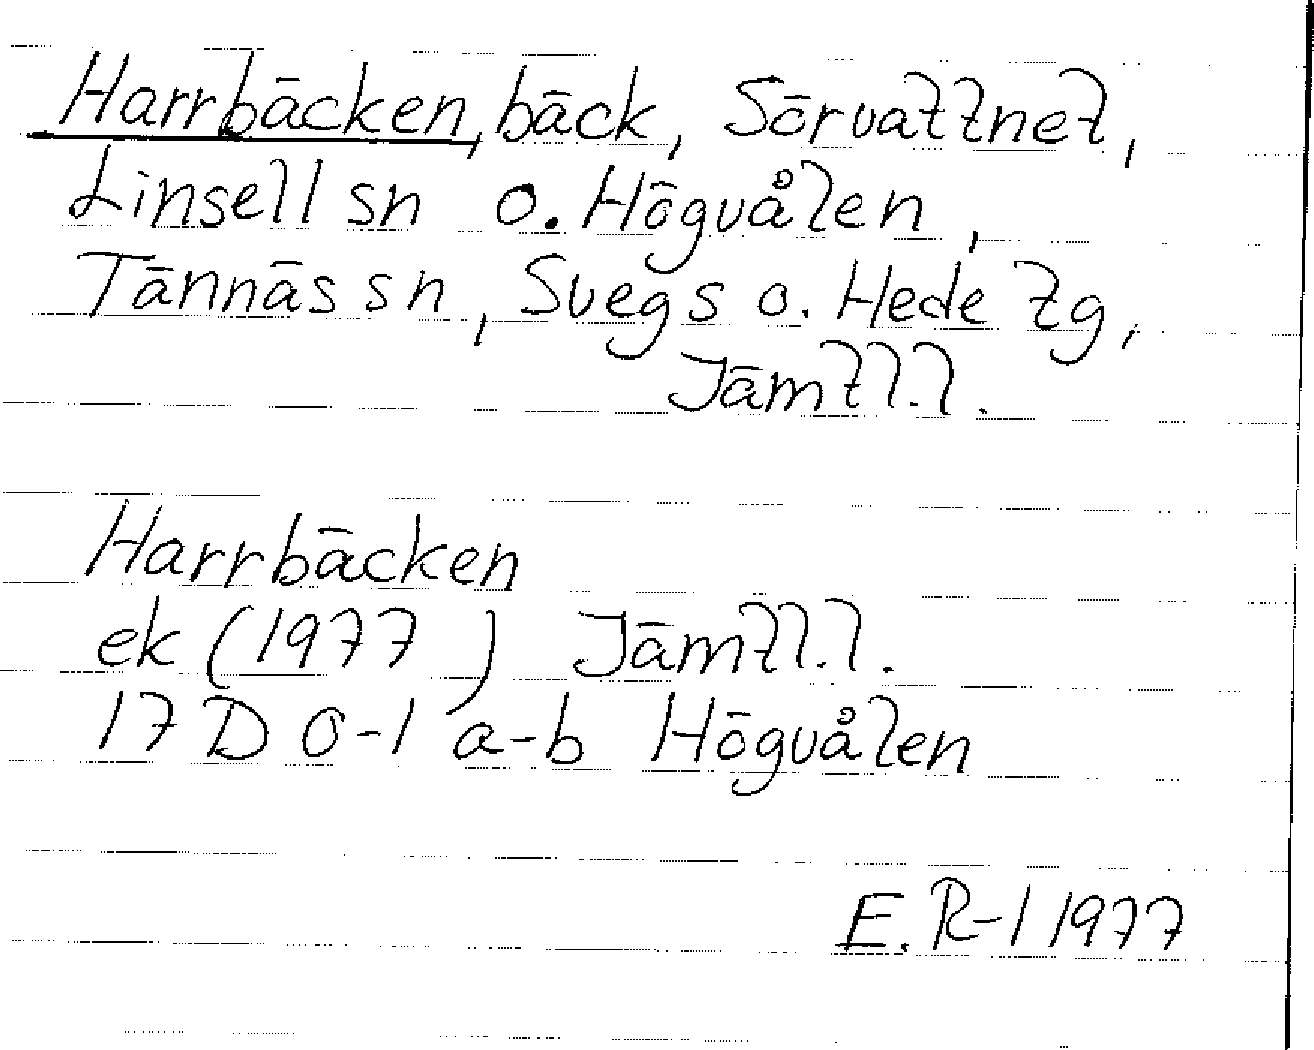 Harrbäcken, bäck, Sörvattnet,
Linsell sn o. Högvålen,
Tännäs sn, Svegs o. Hede tg,
Jämtl.l.
Harrbäcken
ek (1977) Jämtl.l.
17 D 0-1 a-b Högvålen
E. R-l 1977